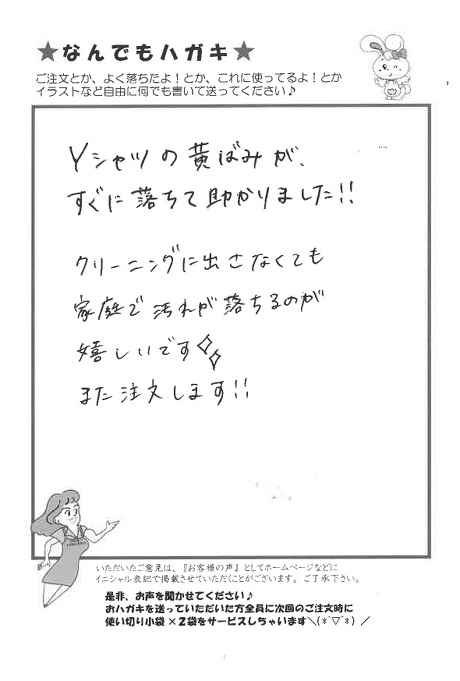 ★なんでもハガキ★
ご注文とか、よく落ちたよ！とか、これに使ってるよ！とか
イラストなど自由に何でも書いて送ってください♪
Yシャツの黄ばみが、
すぐに落ちて助かりました!!
クリーニングに出さなくても
家庭で汚れが落ちるのが
嬉しいです
また注文します!!
いただいたご意見は、『お客様の声』としてホームページなどに
イニシャル表記で掲載させていただくことがございます。ご了承下さい。
是非、お声を聞かせてください♪
おハガキを送っていただいた方全員に次回のご注文時に
使い切り小袋×2袋をサービスしちゃいます＼(*ˆ▽ˆ*)／